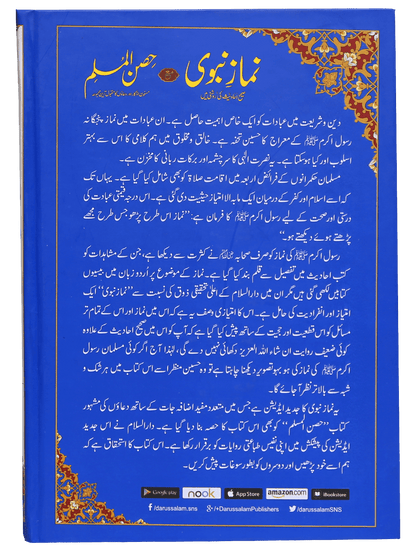 نماز نبوی
صحیح احادیث کی روشنی میں
حصن المسلم
دین و شریعت میں عبادات کو ایک خاص اہمیت حاصل ہے۔ ان عبادات میں نماز پنجگانہ
رسول اکرم ﷺ کے معراج کا حسین تحفہ ہے۔ خالق و مخلوق میں ہم کلامی کا اس سے بہتر
اسلوب اور کیا ہو سکتا ہے۔ یہ نصرت الٰہی کا سرچشمہ اور برکات ربانی کا مخزن ہے۔
مسلمان حکمرانوں کے فرائض اربعہ میں اقامت صلاۃ کو بھی شامل کیا گیا ہے۔ یہاں تک
کہ اسے اسلام اور کفر کے درمیان ایک مابہ الامتیاز حیثیت دی گئی ہے۔ اس درجہ قیمتی عبادت کی
درستی اور صحت کے لیے رسول اکرم ﷺ کا فرمان ہے: ”نماز اس طرح پڑھو جس طرح مجھے
پڑھتے ہوئے دیکھتے ہو۔“
رسول اکرم ﷺ کی نماز کو صرف صحابہ نے کثرت سے دیکھا ہے، جن کے مشاہدات کو
کتب احادیث میں تفصیل سے قلم بند کیا گیا ہے۔ نماز کے موضوع پر اُردو زبان میں بیسیوں
کتابیں لکھی گئی ہیں مگر ان میں دارالسلام کے اعلیٰ تحقیقی ذوق کی نسبت سے ”نماز نبوی“ ایک
امتیاز اور انفرادیت کی حامل ہے۔ اس کا امتیازی وصف یہ ہے کہ اس میں نماز اور اس کے تمام تر
مسائل کو اس قطعیت اور حجیت کے ساتھ پیش کیا گیا ہے کہ آپ کو اس میں صحیح احادیث کے علاوہ
کوئی ضعیف روایت ان شاء اللہ العزیز دکھائی نہیں دے گی، لہٰذا آج اگر کوئی مسلمان رسول
اکرم ﷺ کی نماز کی ہو بہو تصویر دیکھنا چاہتا ہے تو وہ حسین منظر اسے اس کتاب میں ہر شک و
شبہ سے بالاتر نظر آ جائے گا۔
یہ نماز نبوی کا جدید ایڈیشن ہے جس میں متعدد مفید اضافہ جات کے ساتھ دعاؤں کی مشہور
کتاب ”حصن المسلم“ کو بھی اس کتاب کا حصہ بنا دیا گیا ہے۔ دارالسلام نے اس جدید
ایڈیشن کی پیشکش میں اپنی نفیس طباعتی روایات کو برقرار رکھا ہے۔ اس کتاب کا استحقاق ہے کہ
ہم اسے خود پڑھیں اور دوسروں کو بطور سوغات پیش کریں۔
Google play nook App Store amazon.com iBookstore
/darussalam.sns /+DarussalamPublishers /darussalamSNS